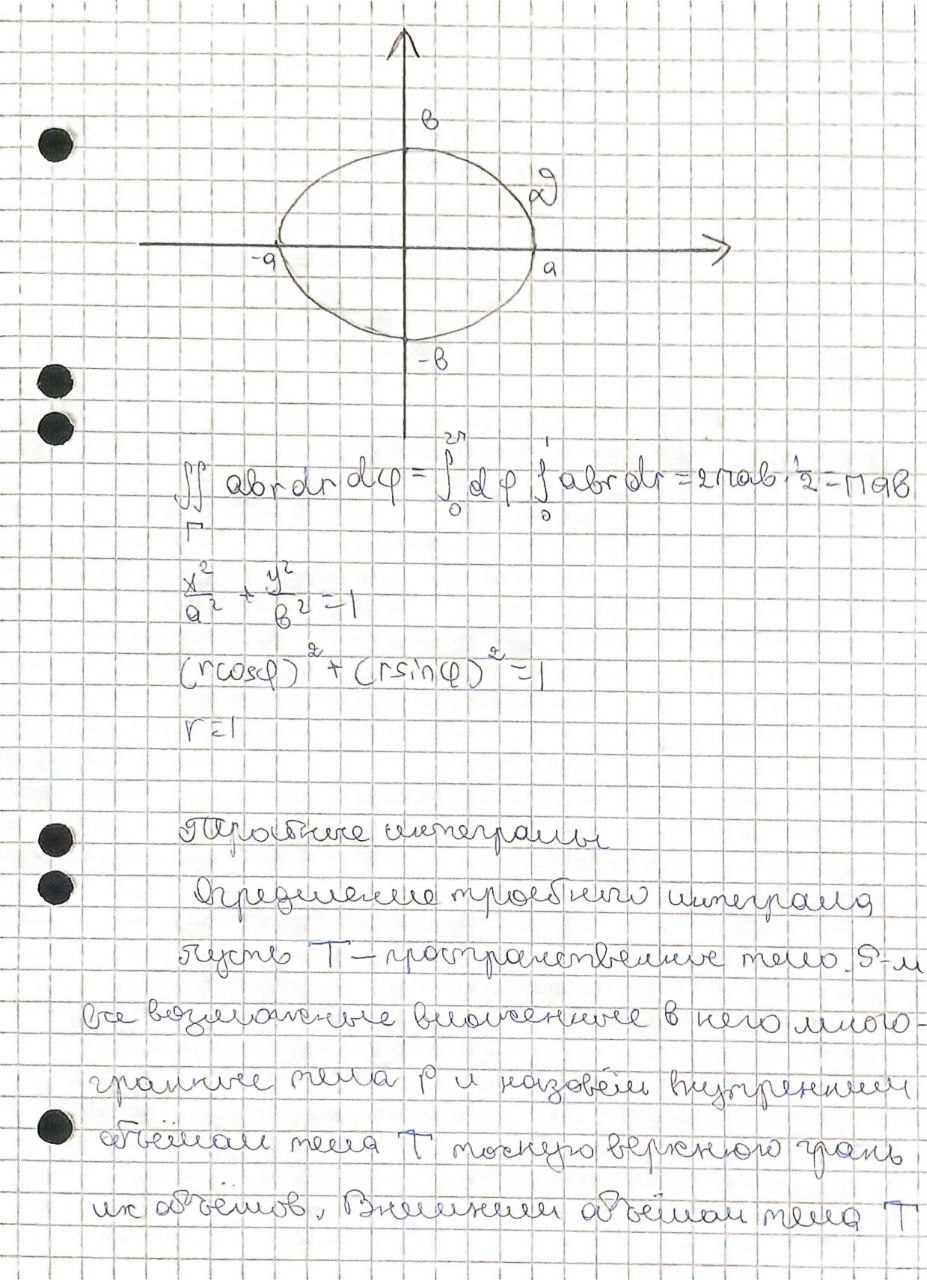 в
D
-a
a
-в
∬ abrdrdφ = ∫ dφ ∫ abrdr = 2πab · 1/2 = πab
Г 0 2π 0 1
x²/a² + y²/в² = 1
(rcosφ)² + (rsinφ)² = 1
r = 1
Тройные интегралы
Определение тройного интеграла
Пусть T – пространственное тело. S-м
все возможные вложенные в него много-
гранные тела P и назовём внутренним
объёмом тела T точную верхнюю грань
их объёмов. Внешним объёмом тела T